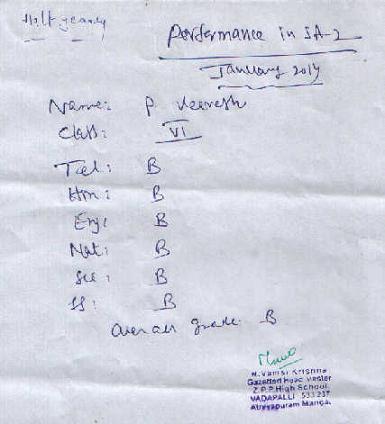 Half yearly
Performance in SA-2
January 2014
Name: P. Veeresh
Class: VI
Tel: B
Hin: B
Eng: B
Mat: B
Sci: B
SS: B
Over all grade: B
M. Vamsi Krishna
Gazetted Head Master
Z.P.P.High School
VADAPALLI 533 237
Atreyapuram Mandal